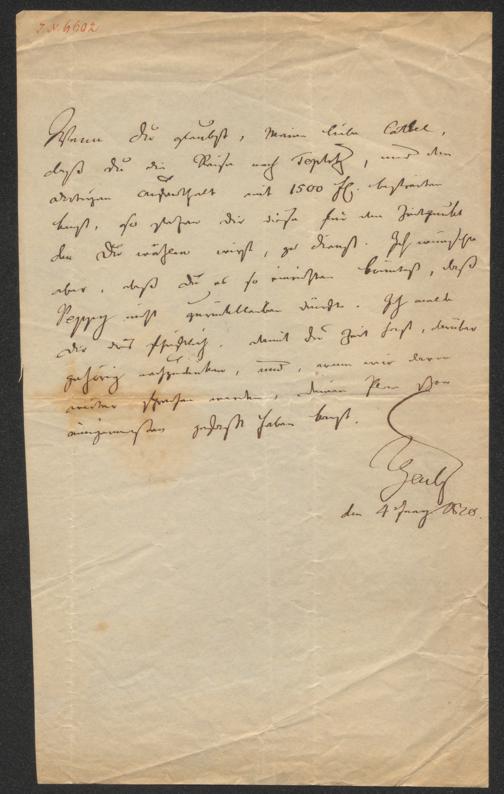 J.N. 6602
Wenn Du glaubst, meine liebe Cattel,
daß Du die Reise nach Teplitz, und den
dortigen Aufenthalt mit 1500 fl. bestreiten
kanst, so stehen Dir diese für den Zeitpunkt
den Du wählen wirst, zu Dienst. Ich wünschte
aber, daß Du es so einrichten könntest, daß
Peppy nicht zurückbleiben dürfte. Ich melde
Dir dies schriftlich, damit Du Zeit hast, darüber
gehörig nachzudenken, und, wenn wir davon
weiter sprechen werden, deinen Plan schon
einigermaßen gefaßt haben kanst.
Gentz
den 4 Juny 1820.